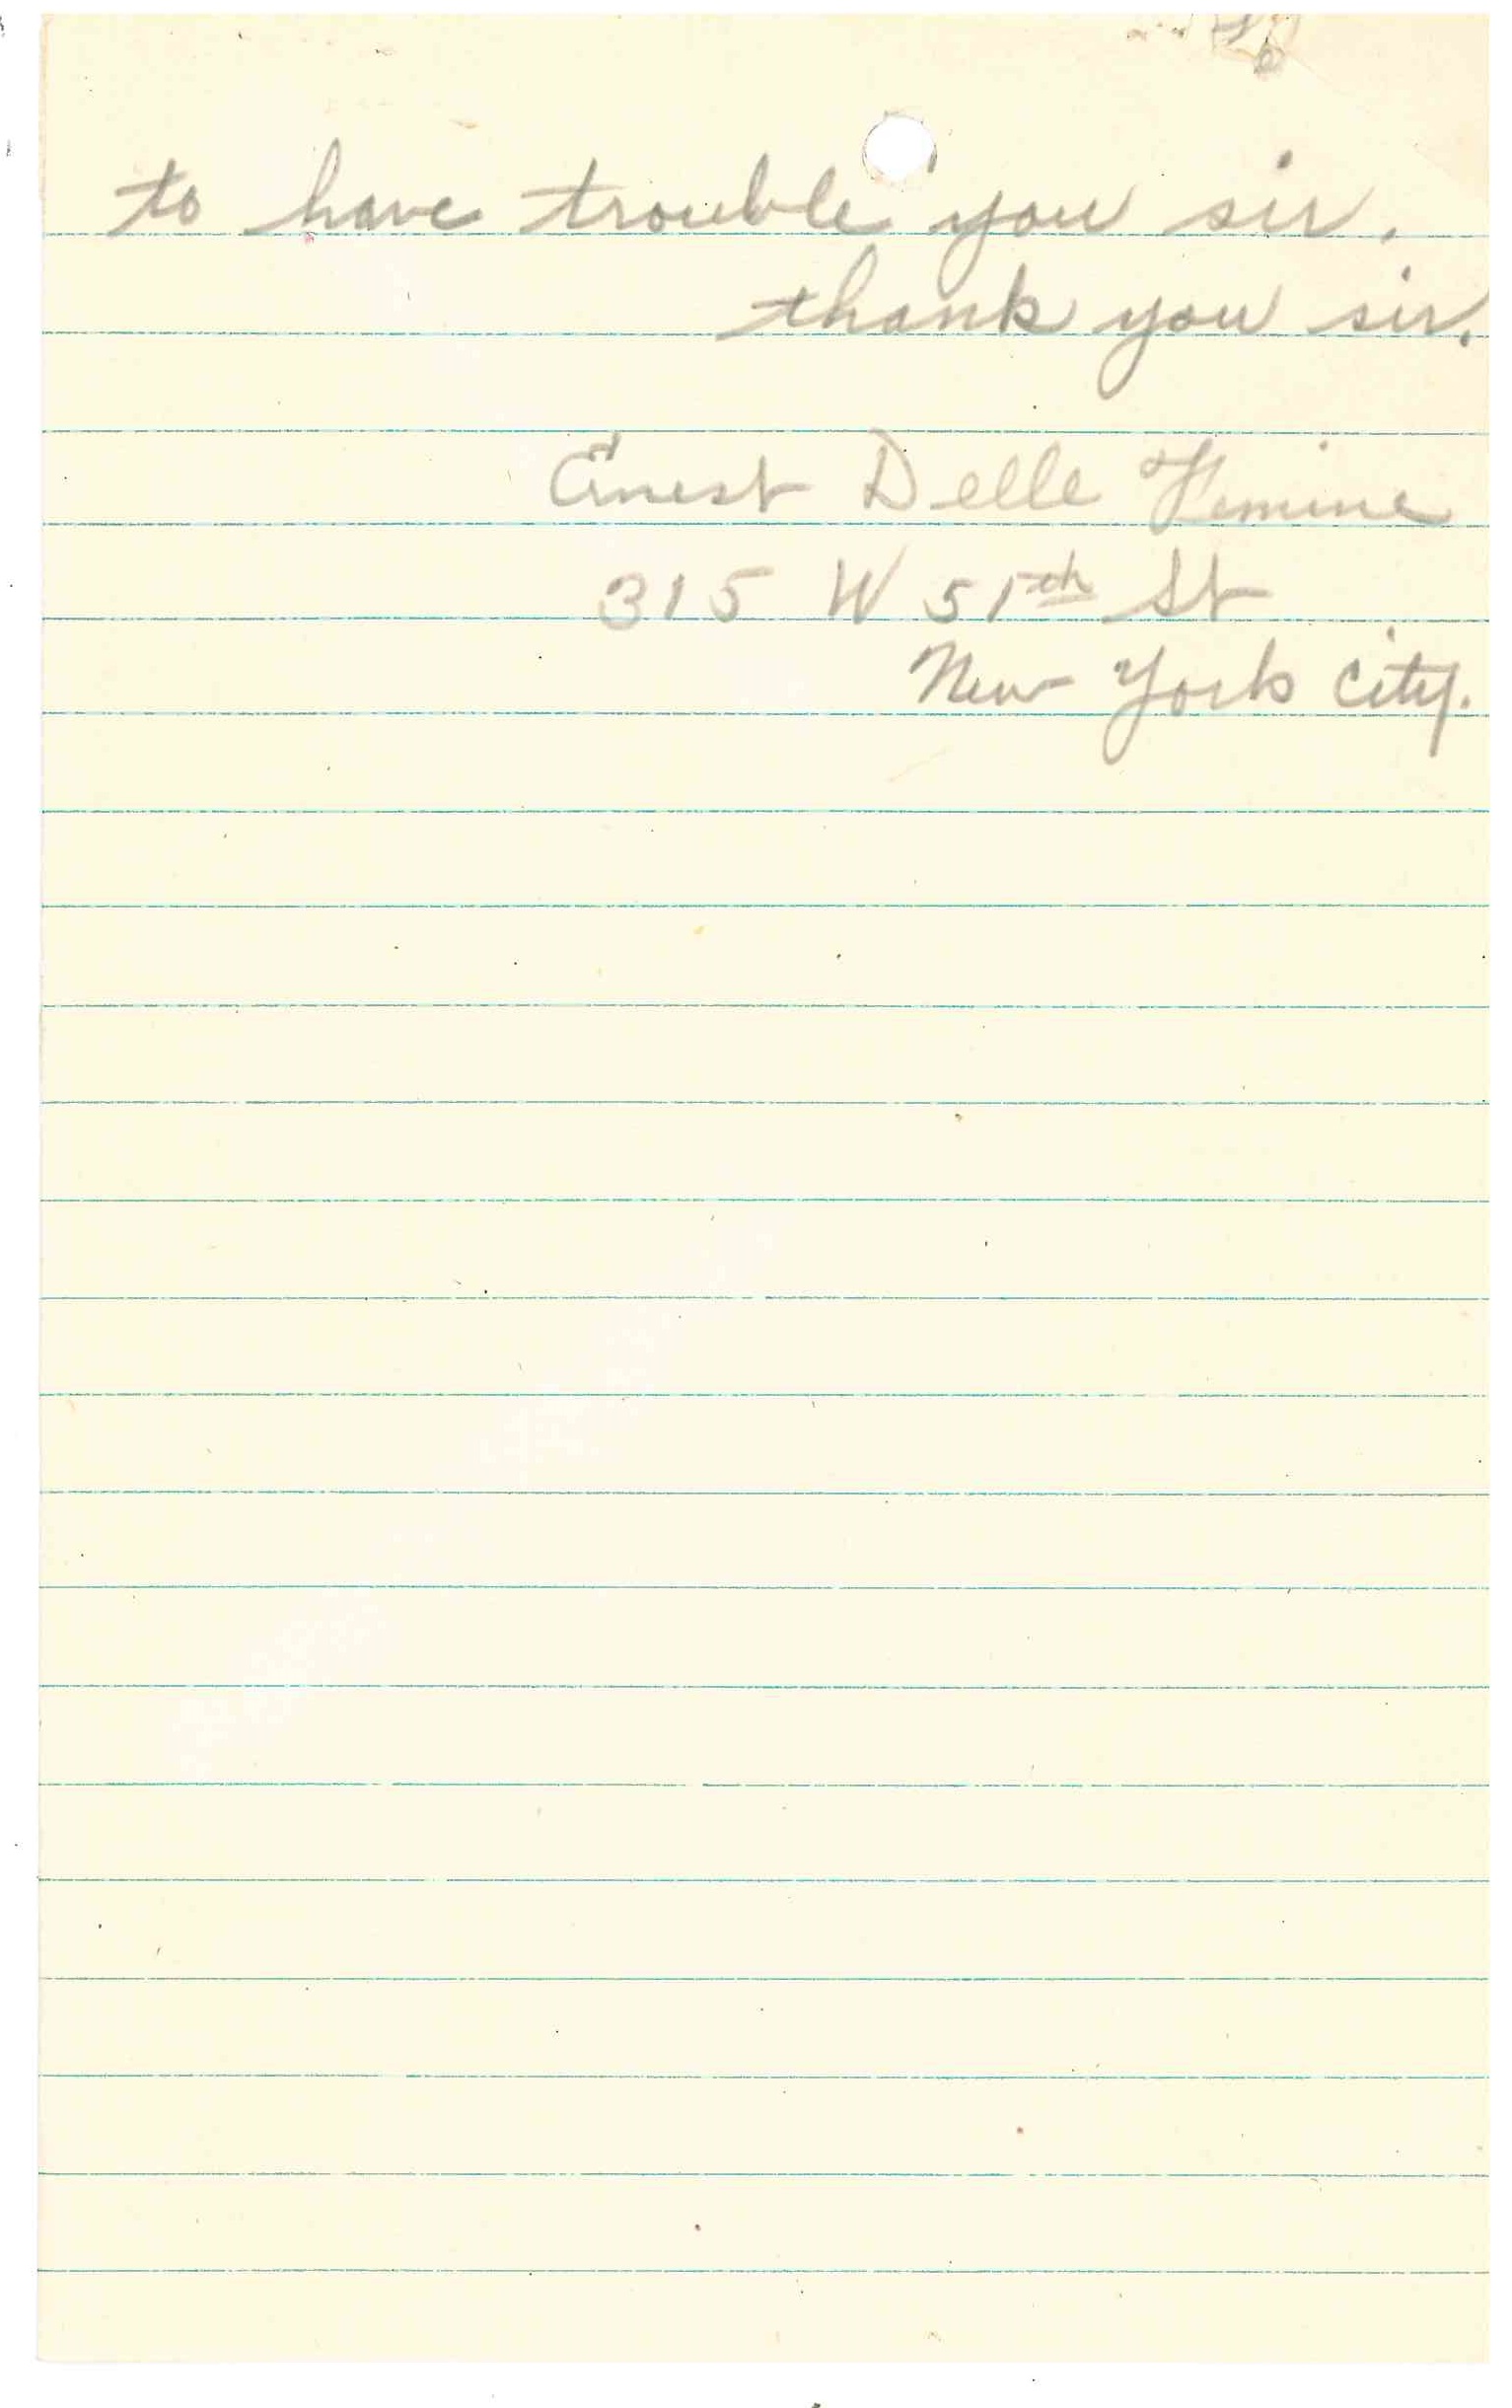 to have trouble you sir.
thank you sir.
Ernest Delle Femine
315 W 51th St
New York City.